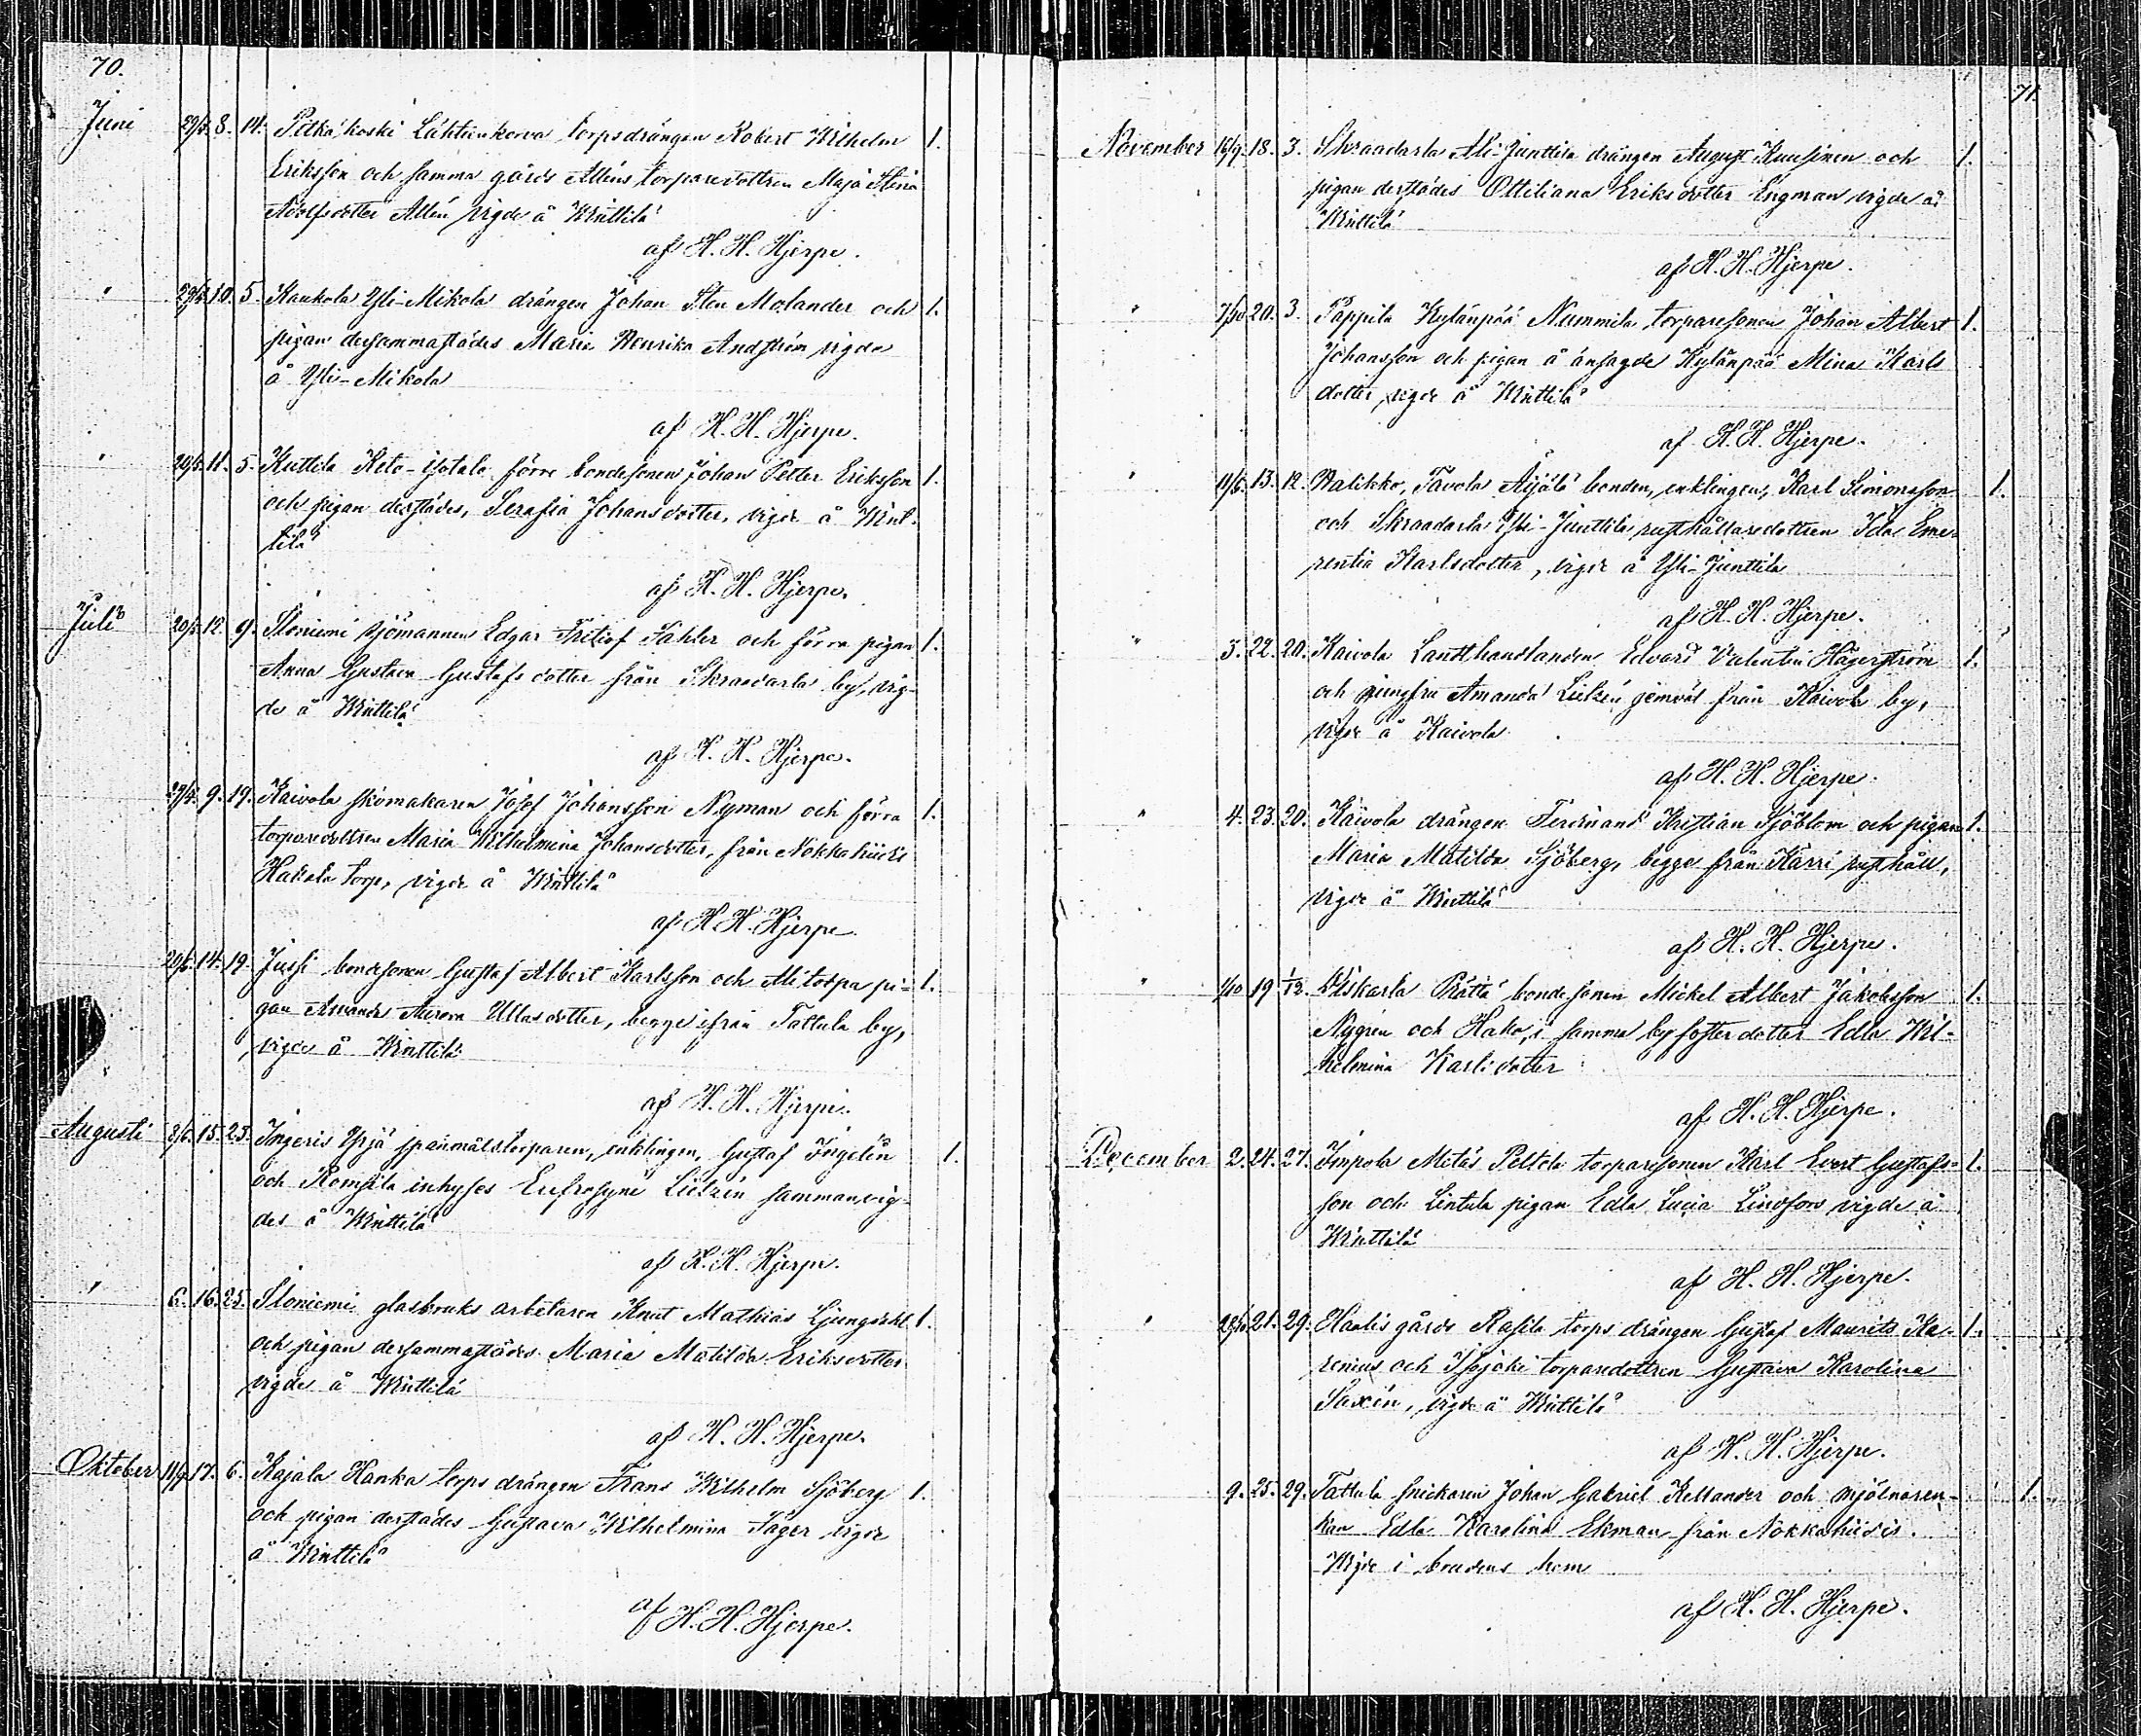 70.
Juni 29/5. 8. 14. Pitkäkoski Lähteenkorva torpsdrängen Robert Wilhelm 1.
Eriksson och samma gårds Alléns torparedottren Maja Stina
Adolfsdotter Allén vigde å Winttilä
af H. H. Hjerpe.
" 10. 5. Kaukola Yli-Mikola drängen Johan Sten Molander och 1.
pigan dersammastädes Maria Henrika Andström vigde
å Yli-Mikola
af H. H. Hjerpe.
" 11. 5. Kuttila Keto-isotalo förre bondesonen Johan Petter Eriksson 1.
och pigan derstädes, Serafia Johansdotter, vigde å Wint-
tilä
af H. H. Hjerpe.
Juli 12. 9. Sloniemi sjömannen Edgar Fritiof Fahler och förra pigan 1.
Anna Gustava Gustafsdotter från Skraadarla by, vig-
de å Winttilä
af H. H. Hjerpe.
9. 19. Kaivola skomakaren Josef Johansson Nyman och förra 1.
torparedottren Maria Wilhelmina Johansdotter, från Nokkahiidis
Hakala torp, vigde å Winttilä
af H. H. Hjerpe
14. 19. Jussi bondesonen Gustaf Albert Karlsson och Alitorpa pi- 1.
gan Amanda Aurora Ullasdotter, begge ifrån Tattula by,
vigde å Winttilä
af H. H. Hjerpe.
Augusti 8/6. 15. 23. Ingeris Ypjä spanmålstorparen, enklingen, Gustaf Ingelin 1.
och Romsila inhyses Eufrosyne Lielzén sammanvig-
des å Winttilä
af H. H. Hjerpe.
" 6. 16. 25. Sloniemi glasbruks arbetaren Knut Mathias Ljungdahl 1.
och pigan dersammastädes Maria Matilda Eriksdotter
vigde å Winttilä
af H. H. Hjerpe.
Oktober 11/9. 17. 6. Kajala Hanka torps drängen Frans Wilhelm Sjöberg 1.
och pigan derstädes Gustava Wilhelmina Fager vigde
å Winttilä
af H. H. Hjerpe.
71.
November 16/9. 18. 3. Skraadarla Ali-Junttila drängen August Kuusinen och 1.
pigan derstädes Ottiliana Eriksdotter Engman vigde å
Winttilä
af H. H. Hjerpe.
" 7/10 20. 3. Pappila Kylänpää Nummila torparesonen Johan Albert 1.
Johansson och pigan å ansagde Kylänpää Mina Karls
dotter, vigde å Winttilä
af H. H. Hjerpe.
" 11/6. 13. 12. Halikko, Tavola Äijälä bonden, enklingen, Karl Simonsson 1.
och Skraadarla Yli-Junttila rusthållaredottren Ida Eme-
rentia Karlsdotter, vigde å Yli-Junttila
af H. H. Hjerpe.
" 3. 22. 20. Kaivola Landthandlanden Edvard Valentin Hägerström 1.
och jungfru Amanda Lielzén jemväl från Kaivola by,
vigde å Kaivola
af H. H. Hjerpe.
" 4. 23. 20. Kaivola drängen Ferdinand Kristian Sjöblom och pigan 1.
Maria Matilda Sjöberg, begge från Kärri rusthåll,
vigde å Winttilä
af H. H. Hjerpe.
" 1/10 19 1/12. Yliskarla Prättä bondesonen Mickel Albert Jakobsson 1.
Nygrén och Hako, i samma by fosterdotter Edla Wil-
helmina Karlsdotter
af H. H. Hjerpe.
December 2. 24. 27. Impola Mitäs Peltola torparesonen Karl Evert Gustafs- 1.
son och Lintula pigan Edla Lucia Lindfors vigde å
Winttilä
af H. H. Hjerpe.
" 21. 29. Haalis gårds Rasila torps drängen Gustaf Maurits Ka- 1.
renius och Isojoki torparedottren Gustava Karolina
Saxén, vigde å Winttilä
af H. H. Hjerpe.
9. 25. 29. Tattula snickaren Johan Gabriel Kellander och mjölnaren- 1.
kan Edla Karolina Ekman från Nokkahiidis.
Wigde i brudens hem
af H. H. Hjerpe.